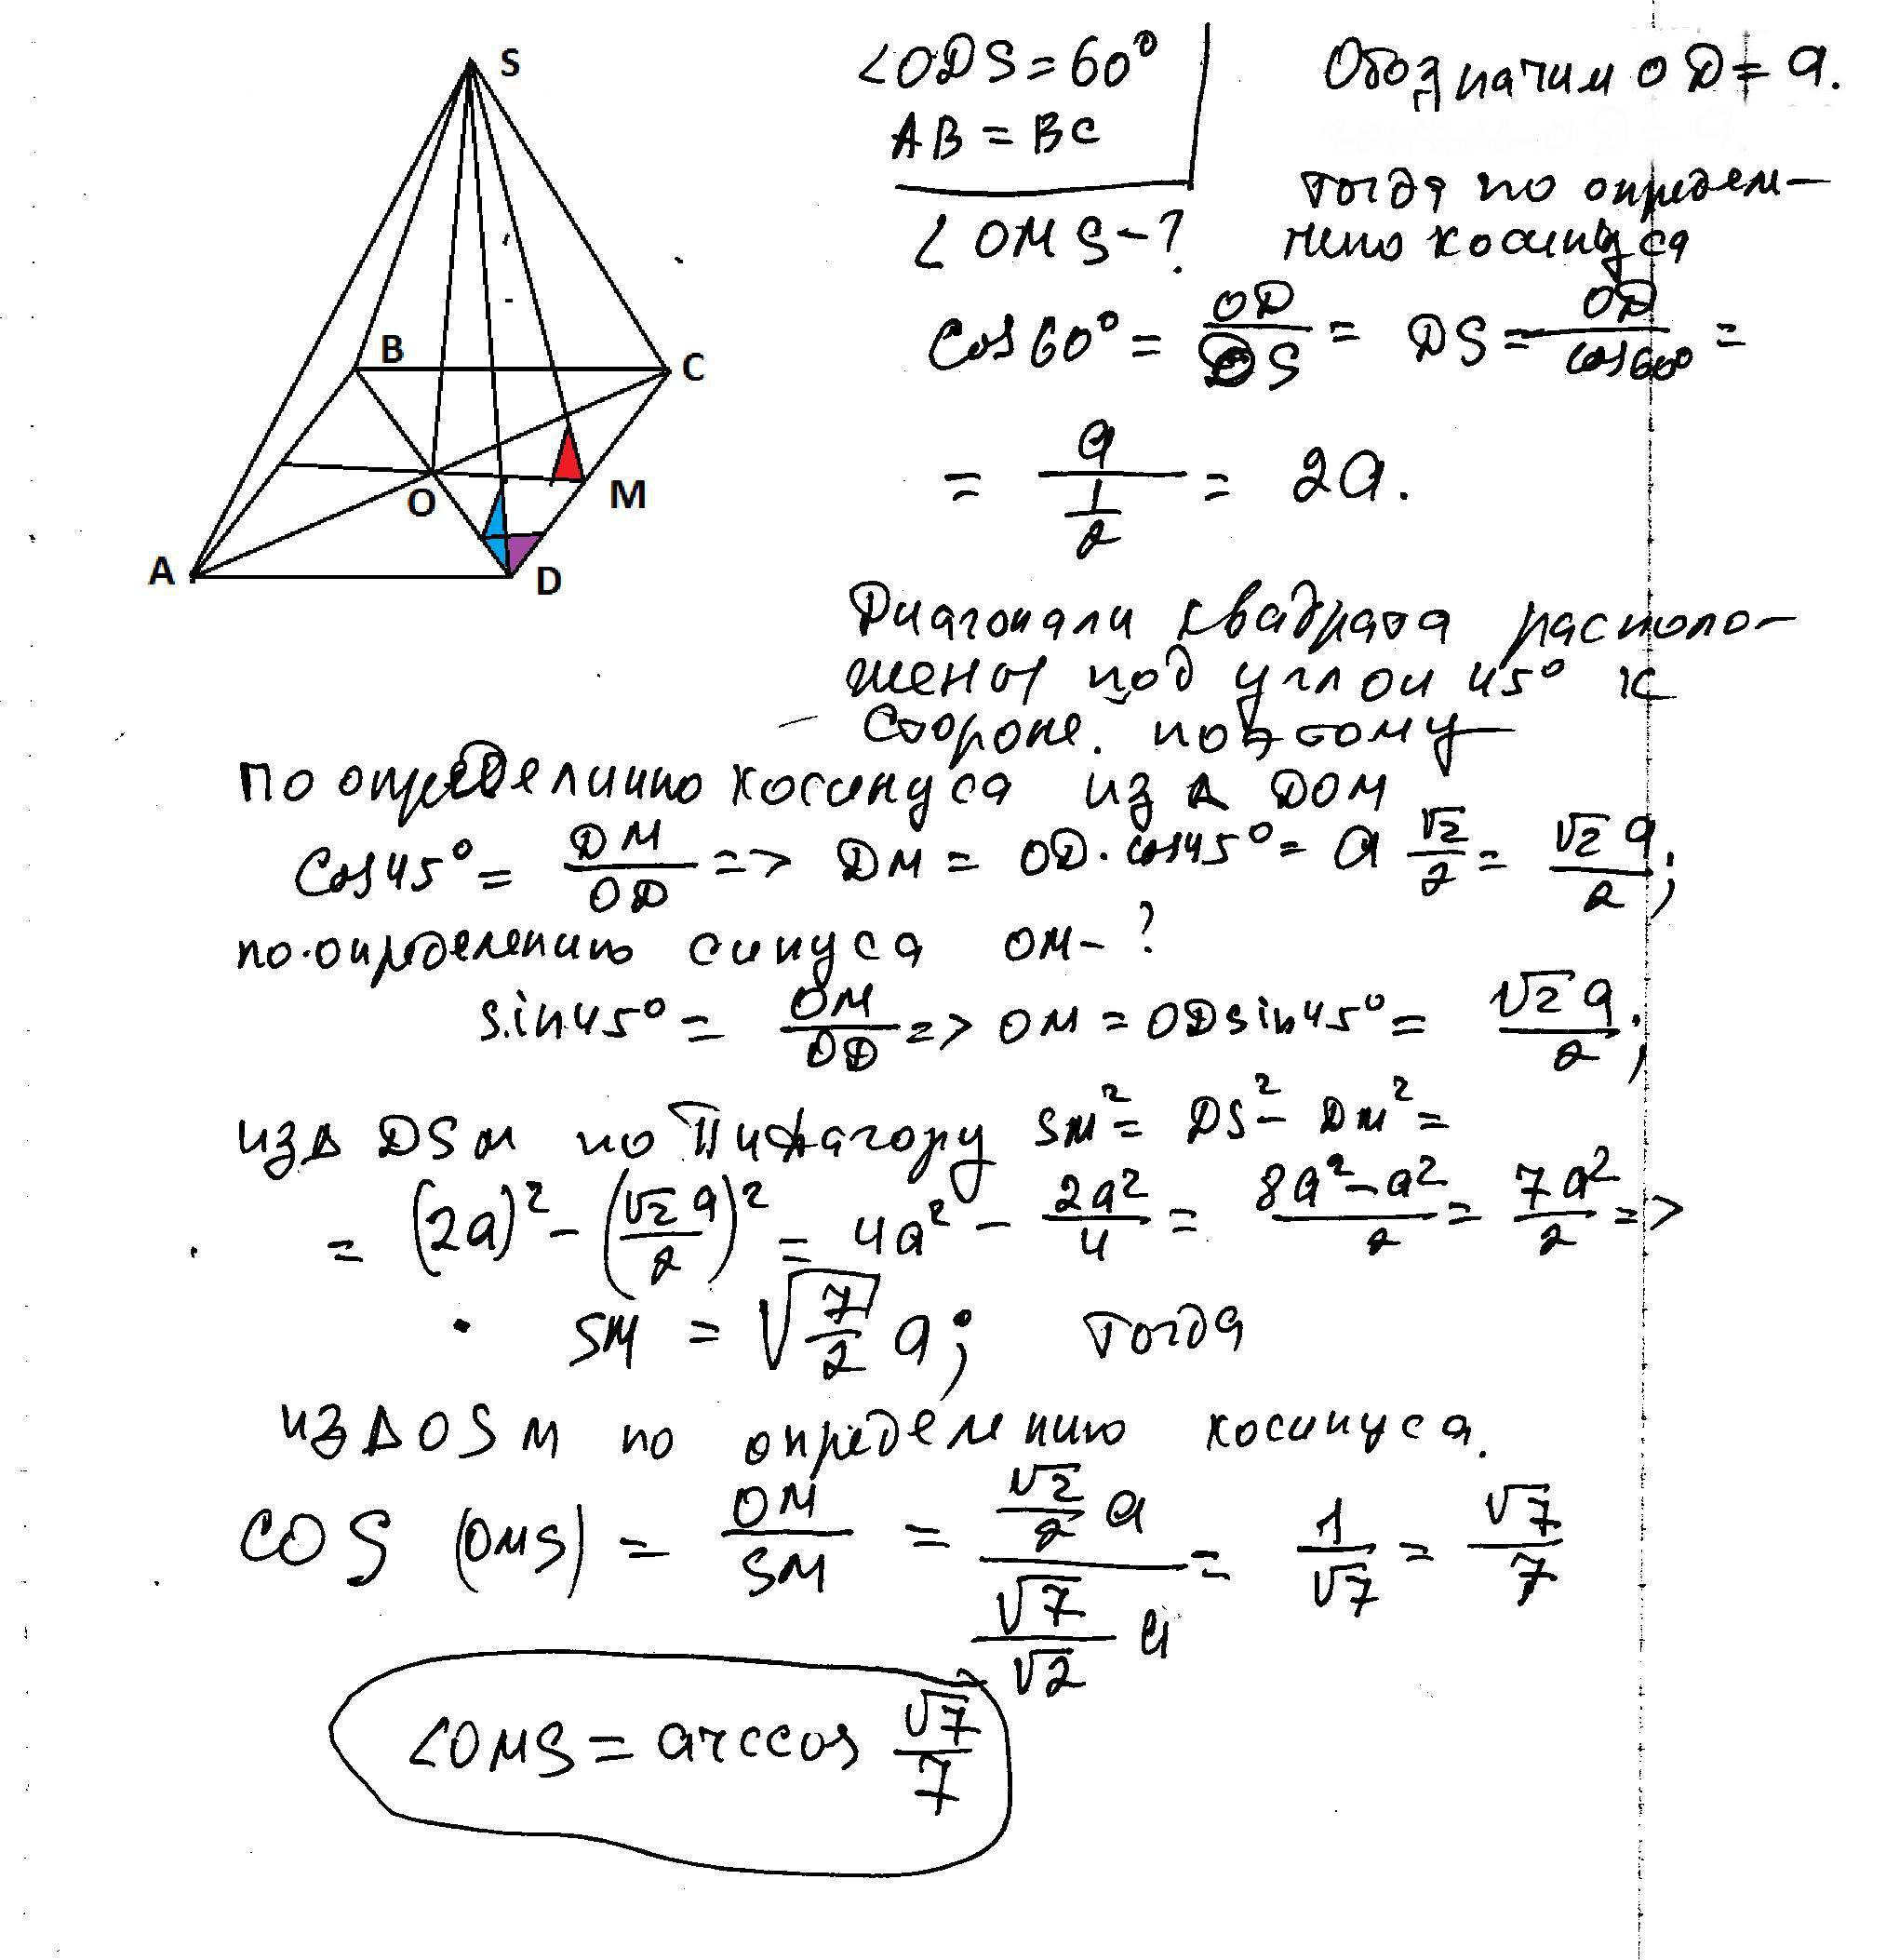 S
B
C
O
M
A
D
∠ODS = 60°
AB = BC
∠OMS - ?
Обозначим OD = a.
тогда по определе-
нию косинуса
cos 60° = OD/DS = DS = OD/cos60° =
= a/(1/2) = 2a.
Диагонали квадрата располо-
жены под углом 45° к
стороне. поэтому
по определению косинуса из Δ DOM
cos 45° = DM/OD => DM = OD · cos45° = a √2/2 = √2 a/2;
по определению синуса OM - ?
sin 45° = OM/OD => OM = OD sin45° = √2 a/2;
из Δ DSM по Пифагору SM² = DS² - DM² =
= (2a)² - (√2 a/2)² = 4a² - 2a²/4 = 8a² - a²/2 = 7a²/2 =>
SM = √(7/2) a; тогда
из Δ OSM по определению косинуса.
COS (OMS) = OM/SM = (√2/2 a)/(√7/√2 a) = 1/√7 = √7/7
∠OMS = arccos √7/7